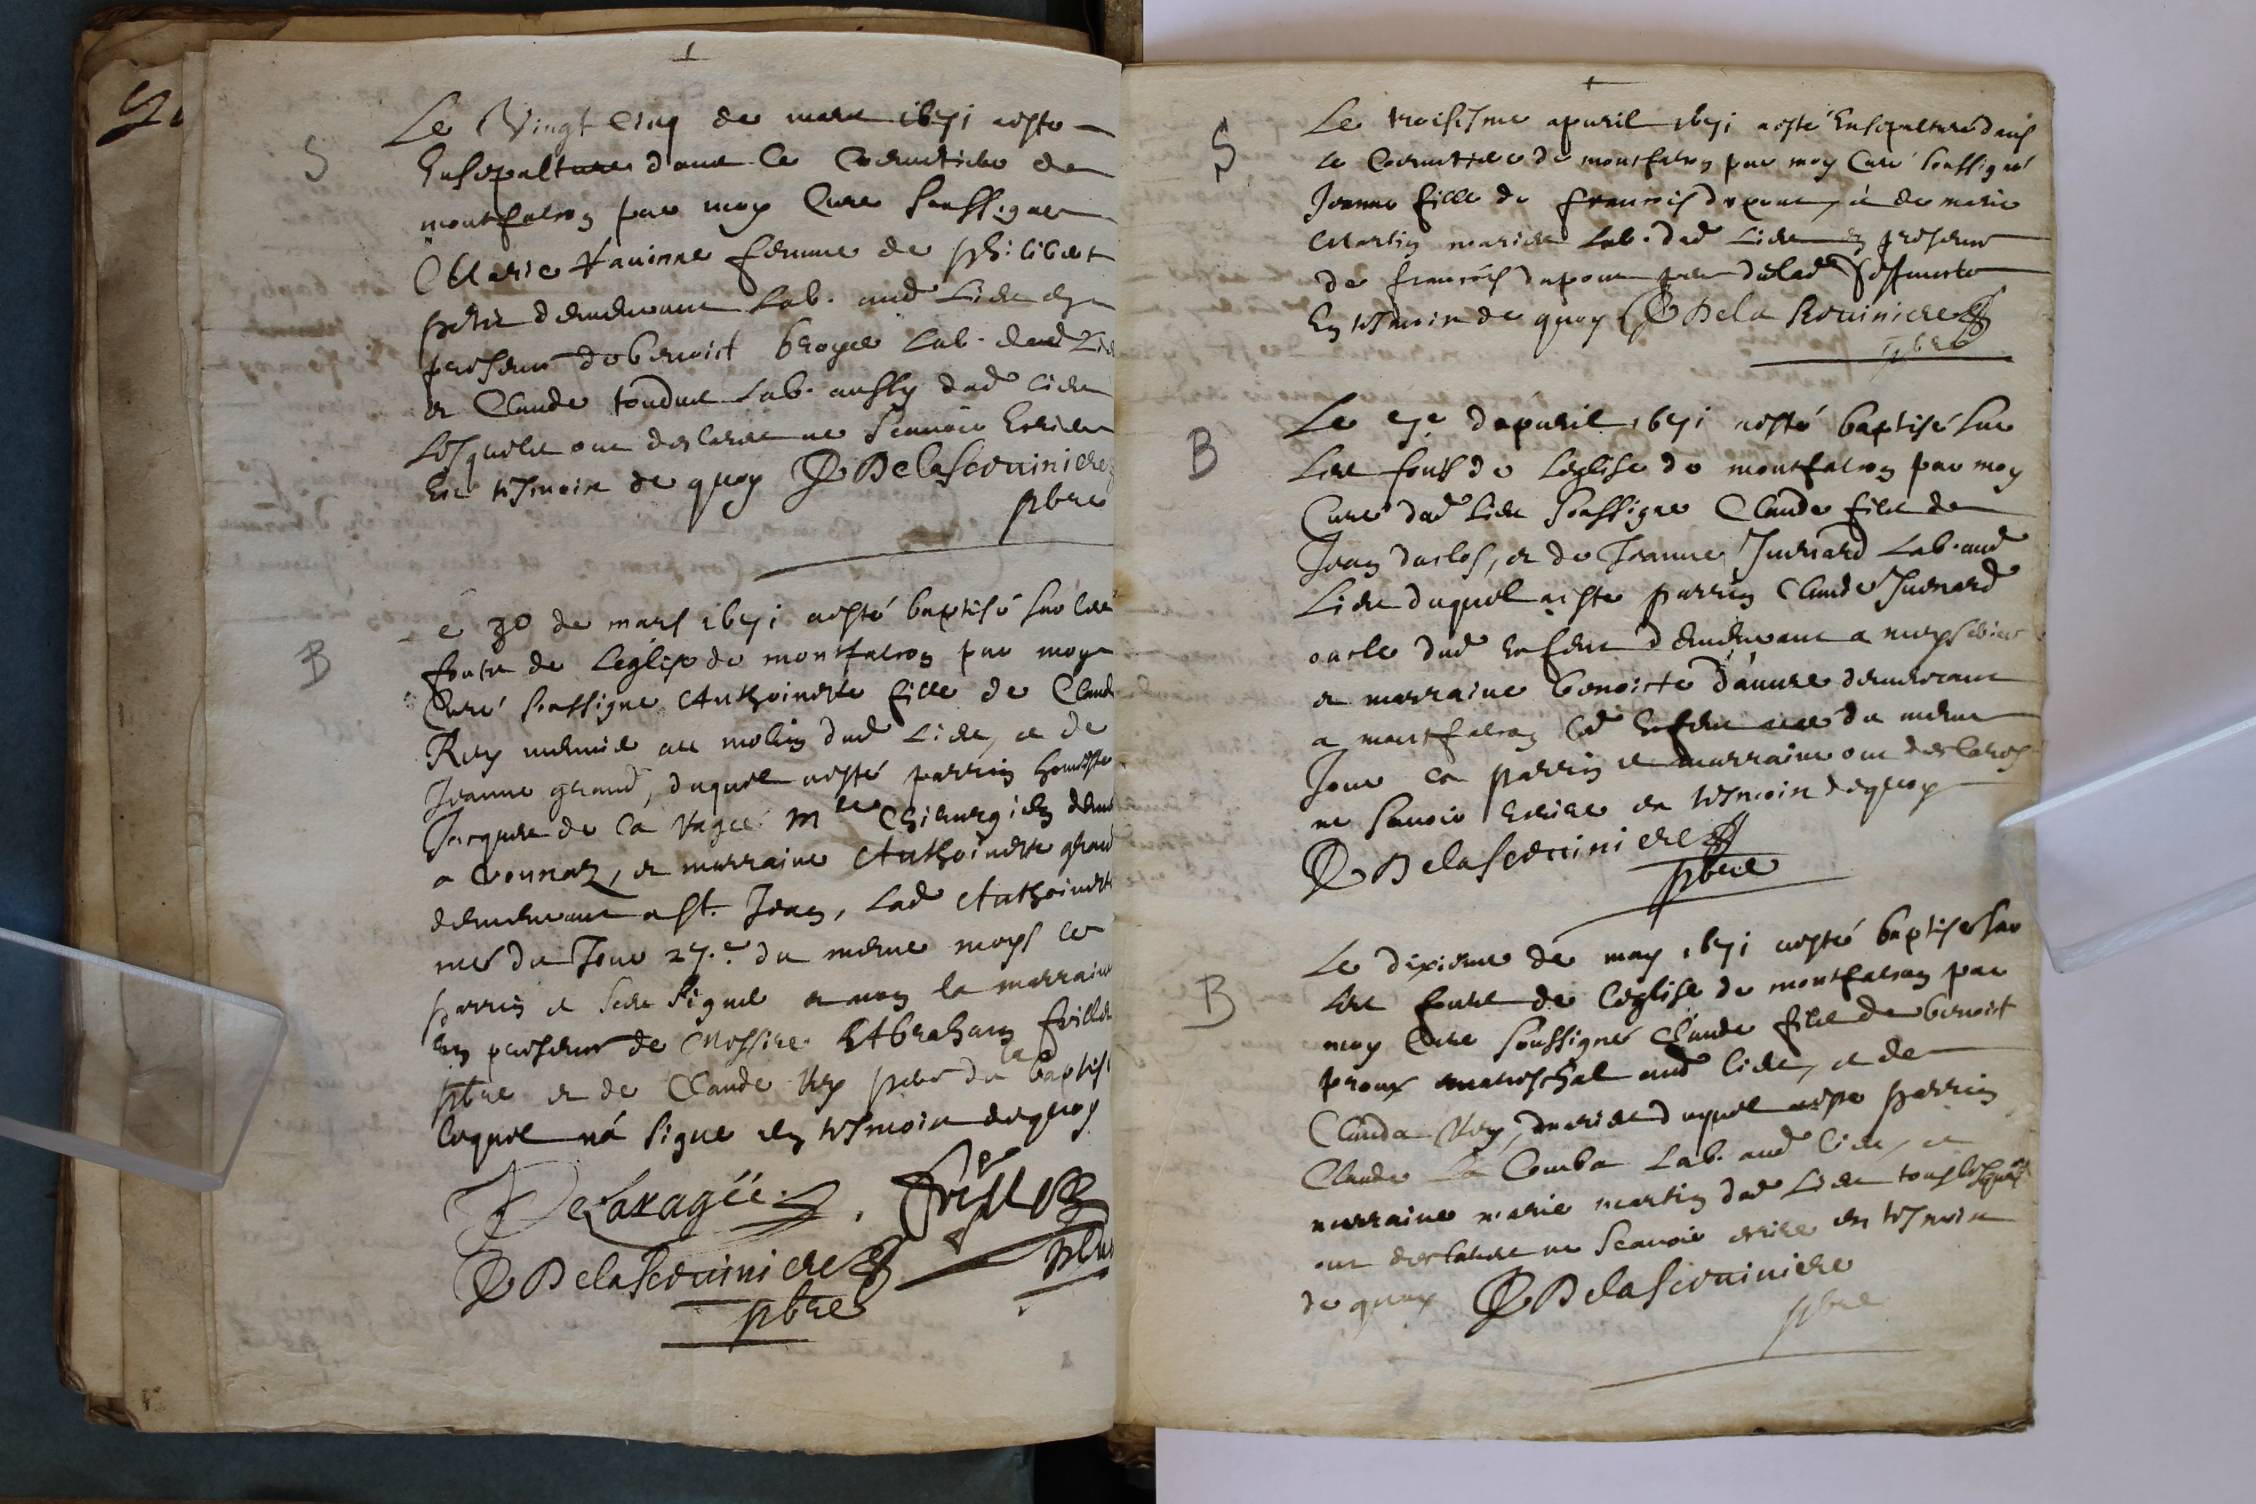 S
Le Vingt Cinq de mars 1671 a esté
Ensepulture dans le Coemitiere de
montfalcon par moy Curé soussigné
Marie femme de philibert
petit demeurant Lab. aud Lieu en
presence de benoist broyer Lab. dud Lieu
et Claude tondu Lab. aussy dud lieu
Lesquels ont declaré ne scavoir Escrire
En tesmoin de quoy DelaServiniere
pbre
B
Le 30 de mars 1671 a esté baptisé sur les
fonts de Leglise de montfalcon par moy
Curé soussigné Anthoinette fille de Claude
Rey munier au molin dud Lieu, et de
Jeanne grand, duquel a esté parrin honneste
Jacques de la Vagée Mtre Chirurgien dem
a Vonnaz, et marraine Anthoinette grand
demeurant a St. Jean, Lad Anthoinette
née du Jour 27.e du meme moys le
parrin et signé et non la marraine
En presence de Messire Abraham frillet
pbre et de Claude Rey pere de la baptisé
lequel n'a signé En tesmoin de quoy
DeLavagée. frillet
DelaServiniere pbre
pbre
S
Le troisisme apvril 1671 a esté Ensepulturé dans
le Coemitiere de montfalcon par moy Curé soussigné
Jeanne fille de francois dupont, et de marie
Martin mariés Lab. dud Lieu en presence
de francois dupont pere de lad deffuncte
En tesmoin de quoy DelaServiniere
pbre
B
Le 7.e d'apvril 1671 a esté baptisé sur
Les fonts de Leglise de montfalcon par moy
Curé dud Lieu soussigné Claude fils de
Jean duclos, et de Jeanne Juenard Lab. aud
Lieu duquel a esté parrin Claude Juenard
oncle dud Enfent demeurant a
et marraine benoiste d'auure demeurant
a montfalcon led Enfent né du meme
Jour le parrin et marraine ont declarés
ne scavoir Escrire en tesmoin de quoy
DelaServiniere
pbre
B
Le dixieme de may 1671 a esté baptisé sur
Les fonts de leglise de montfalcon par
moy Curé soussigné Claude fils de benoist
proux mareschal aud lieu, et de
Clauda Rey, mariés duquel a esté parrin
Claude La Comba Lab. aud lieu, et
marraine marie martin dud Lieu tous lesquels
ont declaré ne scavoir escrire en tesmoin
de quoy DelaServiniere
pbre